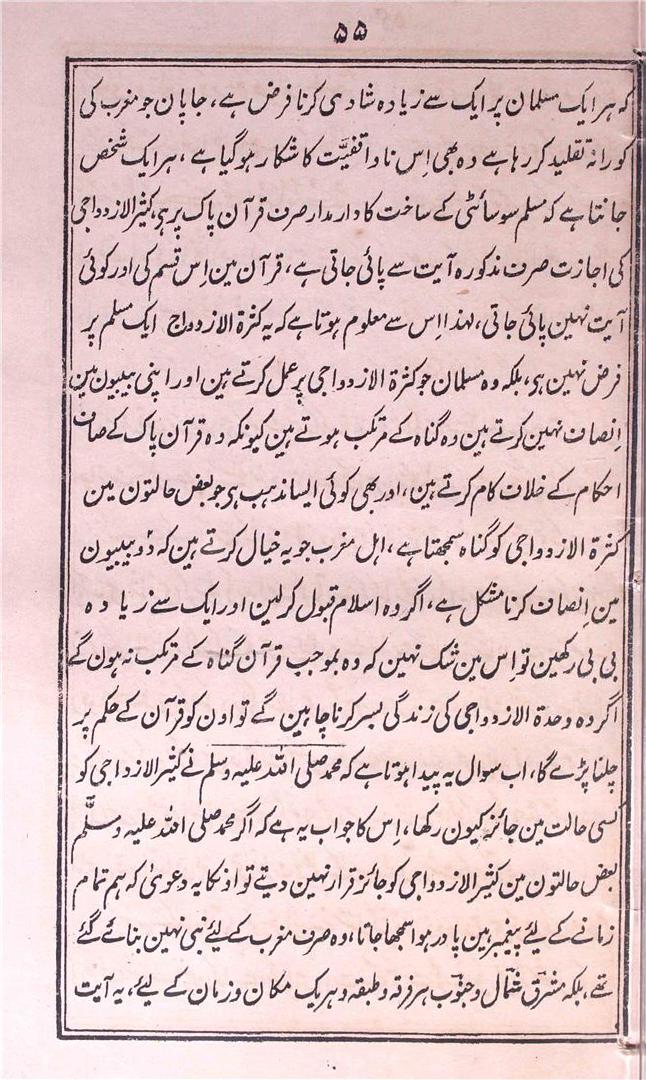 ۵۵
کہ ہر ایک مسلمان پر ایک سے زیادہ شادی کرنا فرض ہے، جاپان جو مغرب کی
کورانہ تقلید کر رہا ہے وہ بھی اِس ناواقفیَّت کا شکار ہو گیا ہے، ہر ایک شخص
جانتا ہے کہ مسلم سوسائٹی کے ساخت کا دارمدار صرف قرآن پاک پر ہی، کثیر الازدواجی
کی اجازت صرف مذکورہ آیت سے پائی جاتی ہے، قرآن مین اِس قسم کی اور کوئی
آیت نہین پائی جاتی، لہذا اِس سے معلوم ہوتا ہے کہ یہ کثرۃ الازدواج ایک مسلم پر
فرض نہین ہی، بلکہ وہ مسلمان جو کثرۃ الازدواجی پر عمل کرتے ہین اور اپنی بیبیون مین
اِنصاف نہین کرتے ہین وہ گناہ کے مرتکب ہوتے ہین کیونکہ وہ قرآن پاک کے صاف
احکام کے خلاف کام کرتے ہین، اور بھی کوئی ایسا مذہب ہی جو بعض حالتون مین
کثرۃ الازدواجی کو گناہ سمجھتا ہے، اہل مغرب جو یہ خیال کرتے ہین کہ دُو بیبیون
مین اِنصاف کرنا مشکل ہے، اگر وہ اسلام قبول کرلین اور ایک سے زیادہ
بی بی رکھین تو اِس مین شک نہین کہ وہ بموجب قرآن گناہ کے مرتکب نہ ہون گے
اگر وہ وحدۃ الازدواجی کی زندگی بسر کرنا چاہین گے تو اون کو قرآن کے حکم پر
چلنا پڑے گا، اب سوال یہ پیدا ہوتا ہے کہ محمد صلی اللہ علیہ وسلم نے کثیر الازدواجی کو
کسی حالت مین جائز کیون رکھا، اِس کا جواب یہ ہے کہ اگر محمد صلی اللہ علیہ وسلَّم
بعض حالتون مین کثیر الازدواجی کو جائز قرار نہین دیتے تو اونکا یہ دعویٰ کہ ہم تمام
زمانے کے لیئے پیغمبر ہین پا در ہوا سمجھا جاتا، وہ صرف مغرب کے لیئے نبی نہین بنائے گئے
تھے، بلکہ مشرق شمال و جنوب ہر فرقہ و طبقہ و ہر یک مکان و زمان کے لیئے، یہ آیت